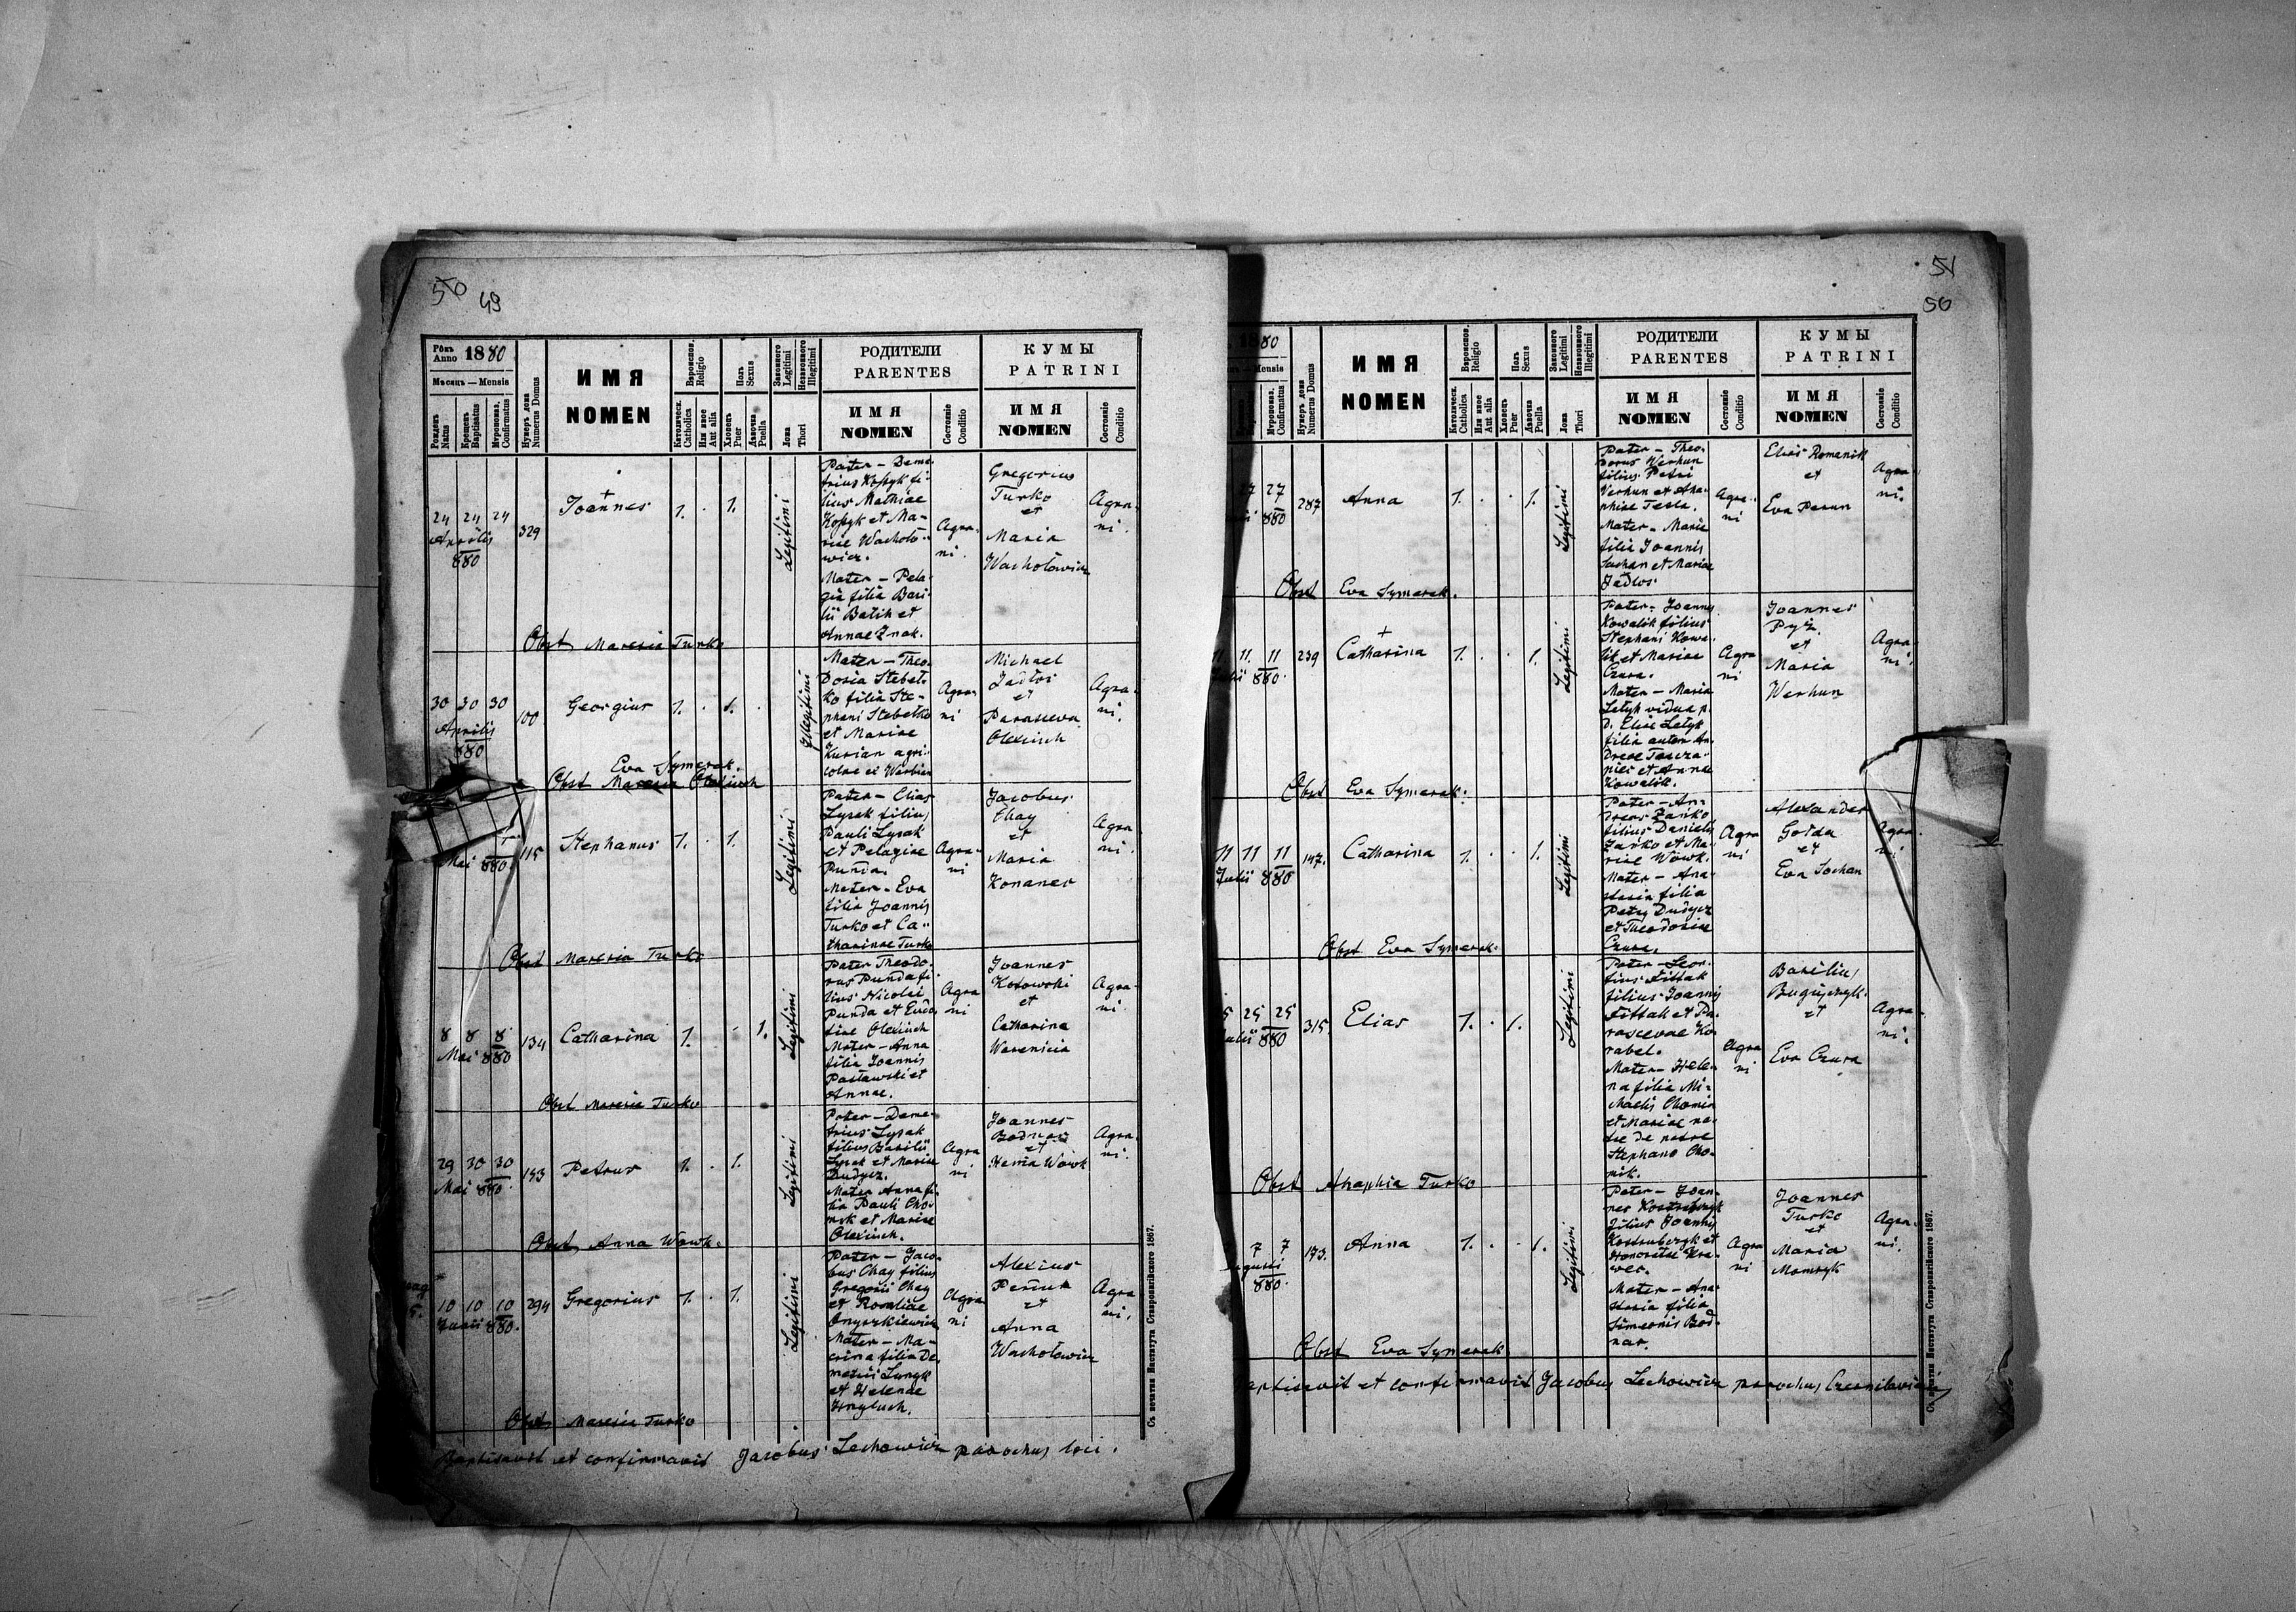 50 49
Рôкъ Anno 1880
Мѣсяцъ — Mensis
Рожденъ Natus
Крещенъ Baptisatus
Мѵропомаз. Confirmatus
Нумеръ дома Numerus Domus
ИМЯ
NOMEN
Вѣроиспов. Religio
Католическ. Catholica
Или иное Aut alia
Полъ Sexus
Хлопецъ Puer
Дѣвочка Puella
Законного Legitimi
Незаконного Illegitimi
Ложа Thori
РОДИТЕЛИ
PARENTES
ИМЯ
NOMEN
Состоянiе Conditio
КУМЫ
PATRINI
ИМЯ
NOMEN
Состоянiе Conditio
24 24 24
Aprilis
880
329
Joannes
1. . 1.
Legitimi
Pater – Deme-
trius Kopyk fi-
lius Mathiae
Kopyk et Ma-
riae Wachoło-
wicz.
Mater – Pela-
gia filia Basi-
lii Balih et
Annae Znak.
Agra-
ni.
Gregorius
Turko
et
Maria
Wachołowicz
Agra-
ni.
Obst Mareria Turko
30 30 30
Aprilis
880
100
Georgius
1. . 1. .
Illegitimi
Mater – Theo-
dosia Stebel-
ko filia Ste-
phani Stebelko
et Mariae
Kurian agri-
colae ei Werbian
Agra-
ni
Michael
Jadłoś
et
Parasceva
Olexiuch
Agra-
ni.
Eva Symerak.
Obst Mareria Olexiuch
Mai 880
115
Stephanus
1. . 1.
Legitimi
Pater – Elias
Lysak filius
Pauli Lysak
et Pelagiae
Punda.
Mater – Eva
filia Joannis
Turko et Ca-
tharinae Turko
Agra-
ni
Jacobus
Chay
et
Maria
Konanec
Agra-
ni.
Obst Mareria Turko
8 8 8
Mai 880
134
Catharina
1. . 1.
Legitimi
Pater Theodo-
rus Punda fi-
lius Nicolai
Punda et Eudo-
xiae Olexiuch
Mater – Anna
filia Joannis
Pasławski et
Annae.
Agra-
ni
Joannes
Kotowski
et
Catharina
Werenicia
Agra-
ni.
Obst Mareria Turko
29 30 30
Mai 880.
193
Petrus
1. . 1.
Legitimi
Pater – Deme-
trius Lysak
filius Basilii
Lysak et Mariae
Dudycz.
Mater Anna fi-
lia Pauli Cho-
mik et Mariae
Olexiuch.
Agra-
ni
Joannes
Bodnar
et
Xenia Wowk
Agra-
ni.
Obst Anna Wowk.
10 10 10
Junii 880.
294
Gregorius
1. . 1.
Legitimi
Pater – Jaco-
bus Chay filius
Gregorii Chay
et Rosaliae
Onyszkiewicz
Mater – Ma-
crina filia De-
metrii Lunyk
et Helenae
Hnyluch.
Agra-
ni
Alexius
Perun
et
Anna
Wachołowicz
Agra-
ni.
Obst Mareria Turko
Baptisavit et confirmavit Jacobus Lechowicz parochus loci.
Съ печатни Института Ставропигiйского 1867.
51
50
1880
Mensis
Мѵропомаз. Confirmatus
Нумеръ дома Numerus Domus
ИМЯ
NOMEN
Вѣроиспов. Religio
Католическ. Catholica
Или иное Aut alia
Полъ Sexus
Хлопецъ Puer
Дѣвочка Puella
Законного Legitimi
Незаконного Illegitimi
Ложа Thori
РОДИТЕЛИ
PARENTES
ИМЯ
NOMEN
Состоянiе Conditio
КУМЫ
PATRINI
ИМЯ
NOMEN
Состоянiе Conditio
27 27
880
287
Anna
1. . . 1.
Legitimi
Pater – Theo-
dorus Werhun
filius Petri
Werhun et Aha-
phiae Tesla.
Mater – Maria
filia Joannis
Sochan et Mariae
Jadłos.
Agra-
ni
Elias Romanik
et
Eva Perun
Agra-
ni.
Obst Eva Symerak.
11. 11. 11
Julii 880.
239
Catharina
1. . . 1.
Legitimi
Pater – Joannes
Kowalik filius
Stephani Kowa-
lik et Mariae
Czura.
Mater – Maria
Letyk vidua p.
d. Elia Letyk
filia autem An-
dreae
et Annae
Kowalik.
Agra-
ni
Joannes
Pyż.
et
Maria
Werhun
Agra-
ni.
Obst Eva Symerak.
11 11 11
Julii 880
147.
Catharina
1. . . 1.
Legitimi
Pater – An-
dreas Zańko
filius Danielis
Zańko et Ma-
riae Wowk.
Mater – Ana-
stasia filia
Petry Dudycz
et Theodosiae
Czura.
Agra-
ni
Alexander
Gołda
et
Eva Sochan
Agra-
ni
Obst Eva Symerak.
25 25
Julii 880
315
Elias
1. . 1.
Legitimi
Pater – Leon-
tius Fittak
filius Joannis
Fittak et Pa-
rascevae Ko-
rabel.
Mater – Hele-
na filia Mi-
chaelis Chomin
et Mariae na-
tae de patre
Stephano Cho-
mik.
Agra-
ni
Basilius
et
Eva Czura
Agra-
ni.
Obst Ahaphia Turko
7 7
Augusti
880.
173.
Anna
1. . . 1.
Legitimi
Pater – Joan-
nes Kostrubczyk
filius Joannis
Kostrubczyk et
Honoratae Kra-
wec.
Mater – Ana-
stasia filia
Simeonis Bod-
nar.
Agra-
ni
Joannes
Turko
et
Maria
Momryk
Agra-
ni.
Obst Eva Symerak
Baptisavit et confirmavit Jacobus Lechowicz parochus
Съ печатни Института Ставропигiйского 1867.